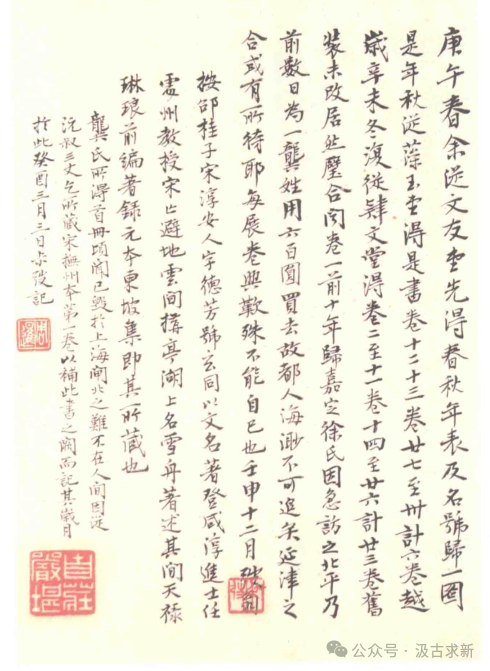 庚午春余從文友堂先得春秋年表及名號歸一圖
是年秋從藻玉堂得是書卷十二十三卷廿七至卅計六卷越
歲辛未冬復從肆文堂得卷二至十一卷十四至廿六計廿三卷舊
裝未改居然璧合闕卷一前十年歸嘉定徐氏因急訪之北平乃
前數日為一龔姓用六百圓買去故都人海渺不可追矣延津之
合或有所待耶每展卷興歎殊不能自已也壬申十二月弢翁
按邵桂子宋淳安人字德芳號玄同以文名著登咸淳進士任
處州教授宋亡避地雲間構亭湖上名雪舟著述其間天祿
琳琅前編著錄元本東坡集即其所藏也
龔氏所得首冊頃聞已毀於上海閘北之難不在人間因從
沅叔三丈乞所藏宋撫州本第一卷以補此書之闕而記其歲月
於此癸酉三月三日叔弢記
周暹
自莊嚴堪
公众号·汲古求新